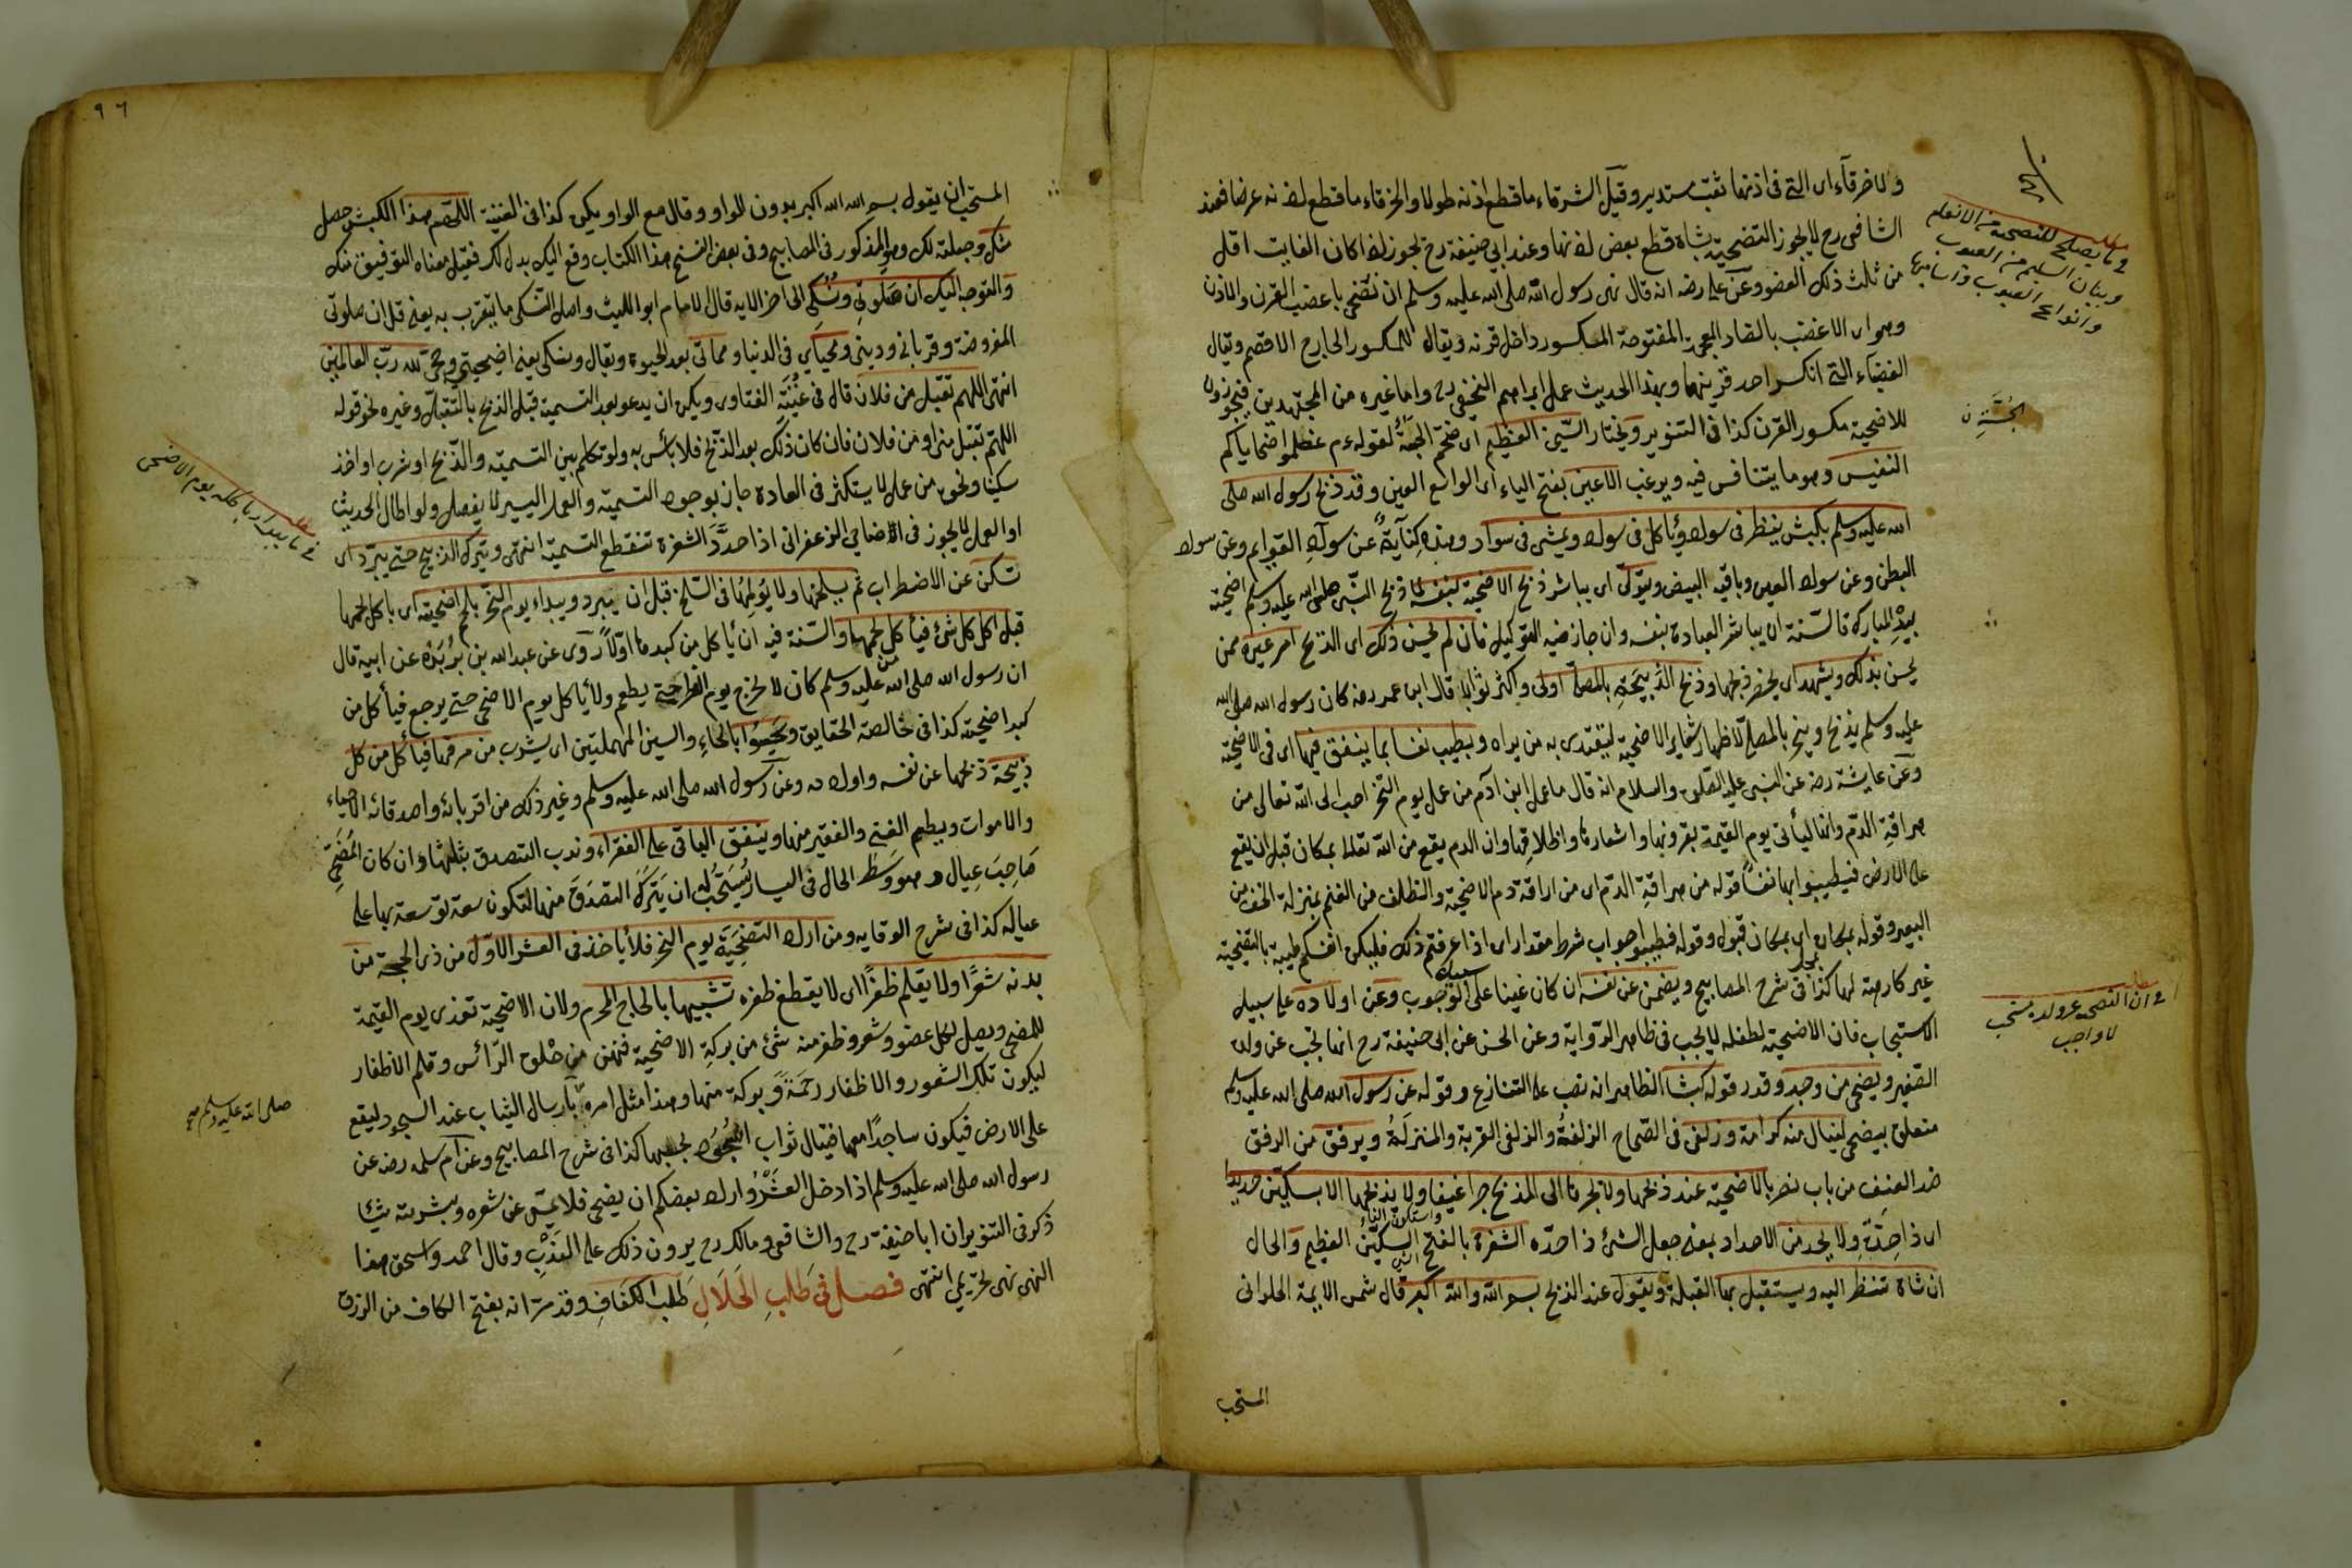 ولا خرقاء اى التى فى اذنها ثقب مستدير وقيل الشرقاء ما قطع اذنه طولا والخرقاء ما قطع اذنه عرضا فعند
الشافعى رح لا يجوز التضحية بشاة قطع بعض اذنها وعند ابى حنيفة رح يجوز اذا كان الفايت اقل
من ثلث ذلك العضو وعن على رضه انه قال نهى رسول الله صلى الله عليه وسلم ان نضحى باعضب القرن والاذن
وهو اى الاعضب بالضاد المعجمة المفتوحة المكسور داخل قرنه ويقال للمكسور الخارج الاقصم ويقال
العضباء التى انكسر احد قرنيها وبهذا الحديث عمل ابراهيم النخعى رح واما غيره من المجتهدين فيجوزون
للاضحية مكسور القرن كذا فى التنوير ويختار السمين العظيم اى ضخم الجثة لقوله عم عظموا ضحاياكم
النفيس وهو ما يتنافس فيه ويرغب الاعين بفتح الياء اى الواسع العين وقد ذبح رسول الله صلى
الله عليه وسلم بكبش ينظر فى سواد ويأكل فى سواد ويمشى فى سواد وهذه كناية عن سواد القوايم وعن سواد
البطن وعن سواد العين وباقيه البيض ويتولى اى يباشر ذبح الاضحية بنفسه كما ذبح النبى صلى الله عليه وسلم اضحيته
بيده المباركة فالسنة ان يباشر العبادة بنفسه وان جاز فيه التوكيل فان لم يحسن ذلك اى الذبح امر غيره ممن
يحسن بذلك ويشهد اى يحضر ذبحها وذبح الذبيحة بالمصلى اولى واكثر ثوابا قال ابن عمر رضه كان رسول الله صلى الله
عليه وسلم يذبح وينحر بالمصلى لاظهار شعاير الاضحية ليقتدى به من يراه ويطيب نفسا بما ينفق فيها اى فى الاضحية
وعن عايشة رضه عن النبى عليه الصلوة والسلام انه قال ما عمل ابن آدم من عمل يوم النحر احب الى الله تعالى من
هراقة الدم وانها ليأتى يوم القيمة بقرونها واشعارها واظلافها وان الدم يقع من الله تعالى بمكان قبل ان يقع
على الارض فيطيبوا بها نفسا قوله من هراقة الدم اى من اراقة دم الاضحية والظلف من الغنم بمنزلة الخف من
البعير وقوله بمكان اى بمكان قبول وقوله فطيبوا جواب شرط مقدر اى اذا عرفتم ذلك فليكن انفسكم طيبة بالتضحية
غير كارهة لها كذا فى شرح المصابيح ويضحى عن نفسه ان كان غنيا على سبيل الوجوب وعن اولاده على سبيل
الاستحباب فان الاضحية لطفله لا يجب فى ظاهر الرواية وعن الحسن عن ابى حنيفة رح انها تجب عن ولده
الصغير ويضحى من وجد وقدر قوله كبشا الظاهر انه نصب على التنازع وقوله عن رسول الله صلى الله عليه وسلم
متعلق بيضحى لينال منه كرامة وزلفى فى الصحاح الزلفة والزلفى القربة والمنزلة ويرفق من الرفق
ضد العنف من باب نصر بالاضحية عند ذبحها ولا يجرها الى المذبح جرا عنيفا ولا يذبحها الا بسكين حديد
اى ذا حدة ولا يحد من الاحداد بمعنى جعل الشئ ذا حدة الشفرة بالفتح واسكون الفاء السكين العظيم والحال
ان شاة تنظر اليه ويستقبل بها القبلة ويقول عند الذبح بسم الله والله اكبر قال شمس الايمة الحلوانى
المستحب
فى ما يصلح للتضحية من الانعام
وبيان السليم من العيوب
وانواع العيوب واساميها
الجثة ن
مطلب
فى ان التضحى عن ولده مستحب
لا واجب
٩٦
المستحب ان يقول بسم الله الله اكبر بدون الواو وقال مع الواو يكره كذا فى القنية اللهم هذا الكبش حصل
منك وجعلته لك وهو المذكور فى المصابيح وفى بعض النسخ هذا الكتاب وقع اليك بدل لك فقيل معناه التوفيق منك
والتوجه اليك ان صلوتى ونسكى الى اخر الايه قال الامام ابو الليث واصل النسك ما يتقرب به يعنى قل ان صلوتى
المفروضة وقربانى ودينى ومحياى فى الدنيا ومماتى بعد الحيوة ويقال ونسكى يعنى اضحيتى وحجى لله رب العالمين
انتهى اللهم تقبل من فلان قال فى غنية الفتاوى ويكره ان يدعو بعد التسمية قبل الذبح بالتقبل وغيره نحو قوله
اللهم تقبل منى او من فلان فان كان ذلك بعد الذبح فلا بأس به ولو تكلم بين التسمية والذبح او شرب او اخذ
سكينا ونحوه من عمل لا يستكثر فى العادة جاز بوجود التسمية والعمل اليسير لا يفصل ولو اطال الحديث
او العمل لا يجوز فى الاضاحى الزعفرانى اذا حدد الشفرة تنقطع التسمية انتهى ويترك الذبيح حتى يبرد اى
تسكن عن الاضطراب ثم يسلخها ولا يؤلمها فى السلخ قبل ان يبرد ويبداء يوم النحر بلحم اضحيته اى باكل لحمها
قبل اكل كل شئ فيأكل لحمها والسنة فيه ان يأكل من كبدها اولا روى عن عبدالله بن بريدة عن ابيه قال
ان رسول الله صلى الله عليه وسلم كان لا يخرج يوم الفطر حتى يطعم ولا يأكل يوم الاضحى حتى يرجع فيأكل من
كبد اضحيته كذا فى خالصة الحقايق ويحسوا بالحاء والسين المهملتين اى يشرب من مرقها فيأكل من كل
ذبيحة ذبحها عن نفسه واولاده وعن رسول الله صلى الله عليه وسلم وغير ذلك من اقربائه واصدقائه الاحياء
والاموات ويطعم الغنى والفقير منها وينفق الباقى على الفقراء وندب التصدق بثلثها وان كان المضحى
صاحب عيال وهو وسط الحال فى اليسار يستحب له ان يترك التصدق منها لتكون سعة توسعة بها على
عياله كذا فى شرح الوقايه ومن اراد التضحية يوم النحر فلا يأخذ فى العشر الاول من ذى الحجة من
بدنه شعرا ولا يقلم ظفرا اى لا يقطع ظفره تشبيها بالحاج المحرم ولان الاضحية تفدى يوم القيمة
للمضحى ويصل لكل عضو وشعر وظفر منه شئ من بركة الاضحية فنهى من حلوق الرأس وقلم الاظفار
ليكون تلك الشعور والاظفار رحمة وبركة منها وهذا مثل امره بارسال الثياب عند السجود ليقع
على الارض فيكون ساجدا معها فينال ثواب السجود بجميعها كذا فى شرح المصابيح وعن ام سلمه رضه عن
رسول الله صلى الله عليه وسلم اذا دخل العشر واراد بعضكم ان يضحى فلا يمس عن شعره وبشرته شيئا
ذكر فى التنوير ان ابا حنيفة رح والشافعى ومالك رح يرون ذلك على الندب وقال احمد واسحق هذا
النهى نهى تحريمى انتهى فصل فى طلب الحلال طلب الكفاف وقد مر انه بفتح الكاف من الرزق
مطلب
فى ما يبدأ باكله يوم الاضحى
صلى الله عليه وسلم صح